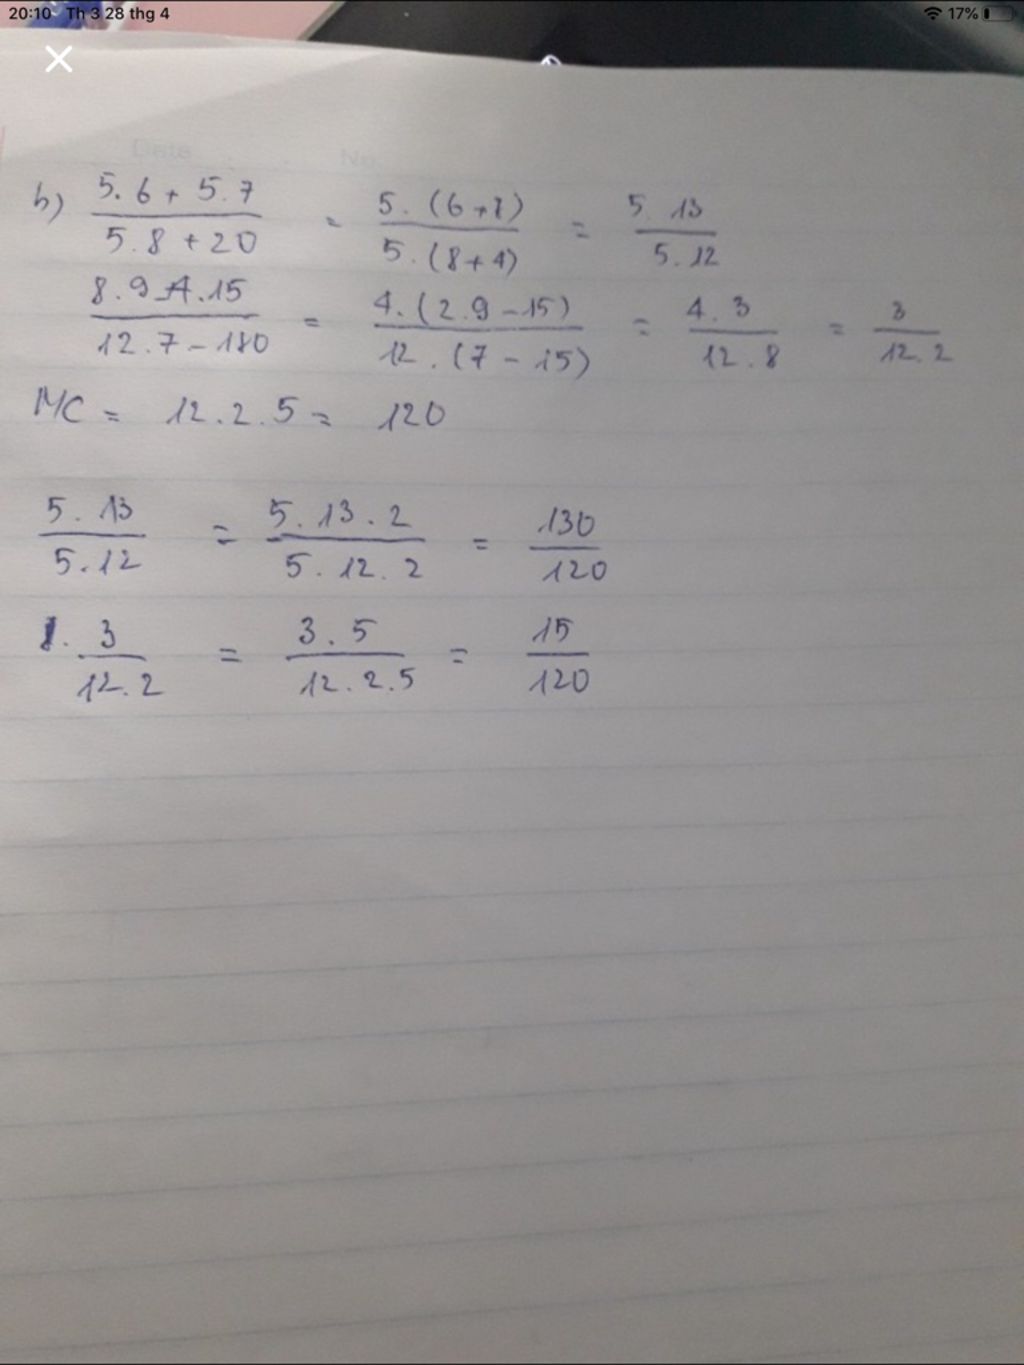 20:10 Th 3 28 thg 4 17%
Date No.
b) \frac{5.6 + 5.7}{5.8 + 20} = \frac{5.(6+7)}{5.(8+4)} = \frac{5.13}{5.12}
\frac{8.9-4.15}{12.7-180} = \frac{4.(2.9-15)}{12.(7-15)} = \frac{4.3}{12.8} = \frac{3}{12.2}
MC = 12.2.5 = 120
\frac{5.13}{5.12} = \frac{5.13.2}{5.12.2} = \frac{130}{120}
\frac{3}{12.2} = \frac{3.5}{12.2.5} = \frac{15}{120}